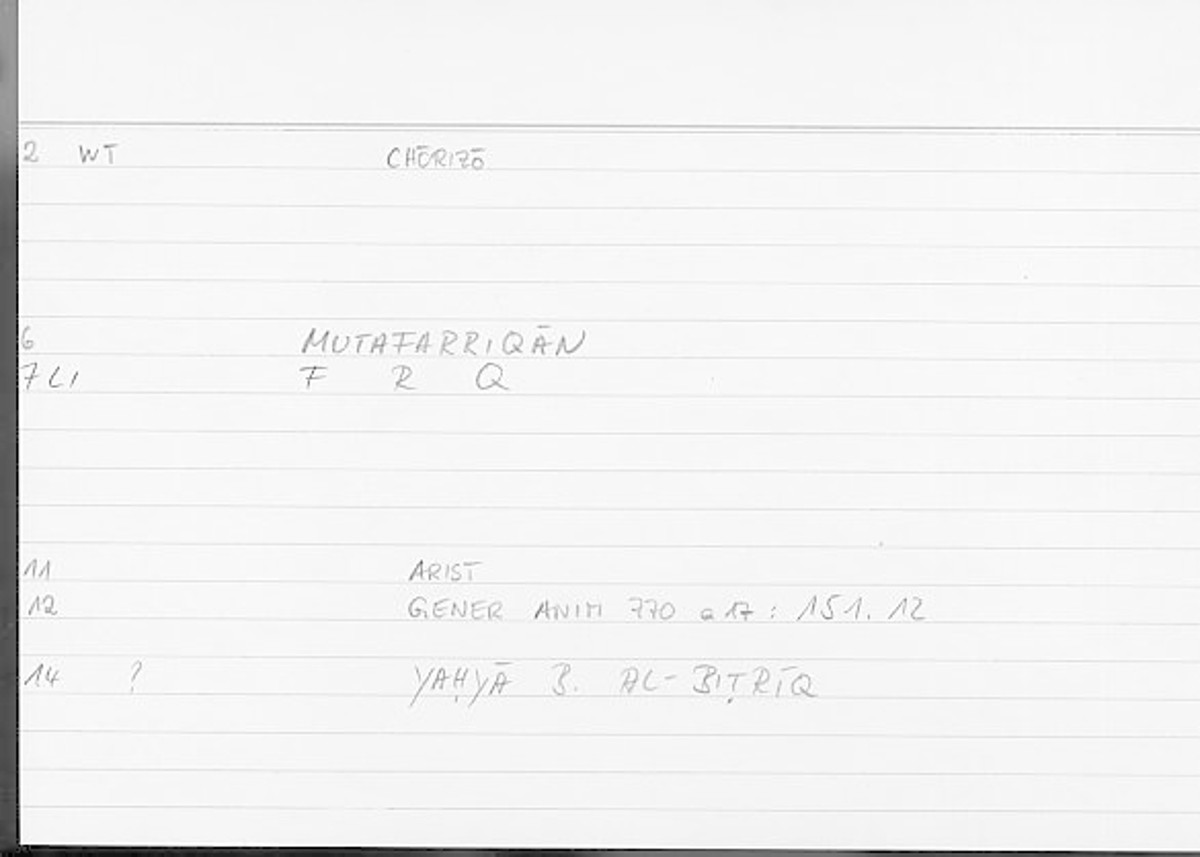 2 WT CHŌRIZŌ
6 MUTAFARRIQĀN
7 LI F R Q
11 ARIST
12 GENER ANIM 770 a 17 : 151. 12
14 ? YAḤYĀ B. AL-BIṬRĪQ